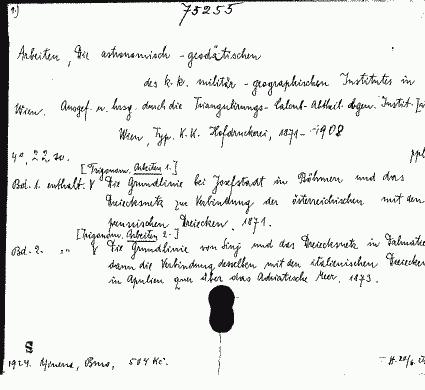 1.)
75255
Arbeiten, Die astronomisch-geodätischen
des k.k. militär-geographischen Institutes in
Wien. Ausgef. u. hrsg. durch die Triangulirungs-Calcul-Abtheil. Instit.
Wien, Typ. K.K. Hofdruckerei, 1871-1908
4°, 22
[Trigonom. Arbeiten 1.]
Bd. 1. enthält. Die Grundlinie bei Josefstadt in Böhmen und das
Dreiecksnetz zur Verbindung der österreichischen mit den
preussischen Dreiecken. 1871.
[Trigonom. Arbeiten 2.]
Bd. 2. " Die Grundlinie von Sinj und das Dreiecksnetz in
dann die Verbindung desselben mit den italienischen Dreiecken
in Apulien quer über das Adriatische Meer. 1873.
S
1924. Brno, 504 Kč.